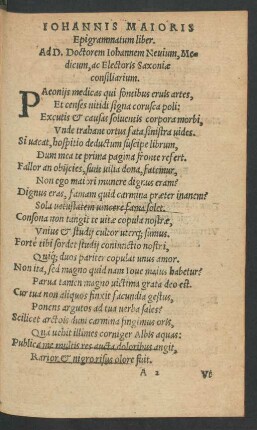 IOHANNIS MAIORIS
Epigrammatum liber.
Ad D. Doctorem Iohannem Neuium, Me-
dicum, ac Electoris Saxoniæ
consiliarium.
PAeonijs medicas qui fontibus eruis artes,
Et censes nitidi signa corusca poli;
Excutis & causas soluentis corpora morbi,
Vnde trahant ortus fata sinistra uides.
Si uacat, hospitio deductum suscipe librum,
Dum mea te prima pagina fronte refert.
Fallor an obijcies, sunt uilia dona, fatemur,
Non ego maiori munere dignus eram?
Dignus eras, famam quid carmina præter inanem?
Sola uetustatem uincere fama solet.
Consona non tangit te uitæ copula nostræ,
Vnius & studij cultor uterq; sumus.
Forte tibi sordet studij coniunctio nostri,
Quiq; duos pariter copulat unus amor.
Non ita, sed magno quid nam Ioue maius habetur?
Parua tamen magno uictima grata deo est.
Cur tua non aliquos finxit facundia gestus,
Ponens argutos ad tua uerba sales?
Scilicet arctois dum carmina fingimus oris,
Qua uehit illimes corniger Albis aquas:
Publica me multis res aucta doloribus angit,
Rarior & nigro risus olore fuit.
A 2
Vt